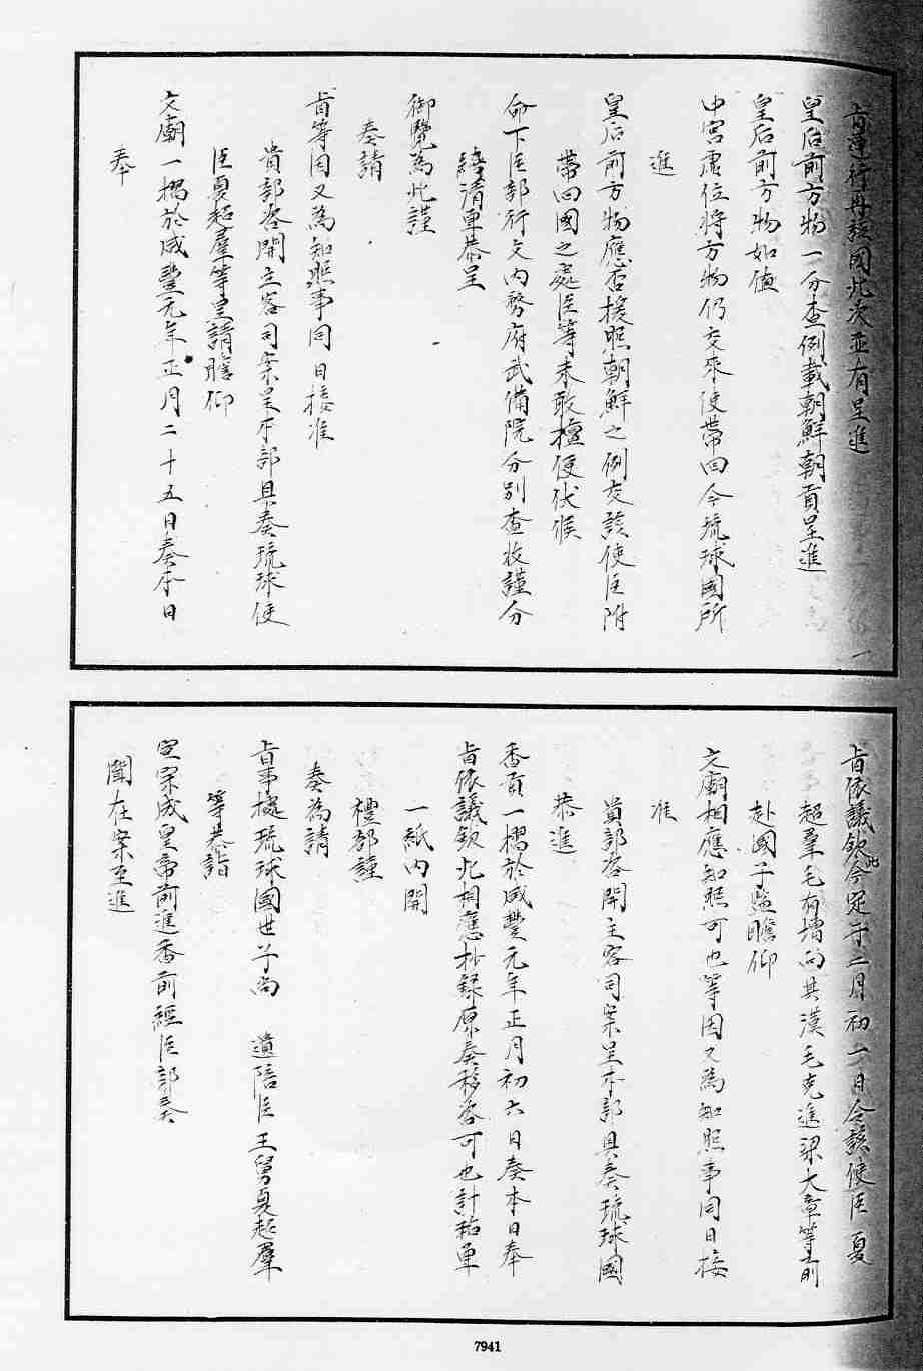 旨遵行再該國此次並有呈進
皇后前方物一分查例載朝鮮朝貢呈進
皇后前方物如值
中宮虛位將方物仍交來使帶回今琉球國所
進
皇后前方物應否援照朝鮮之例交該使臣附
帶回國之處臣等未敢擅便伏候
命下臣部行文內務府武備院分別查收謹分
繕清單恭呈
御覽為此謹
奏請
旨等因又為知照事同日接准
貴部咨開主客司案呈本部具奏琉球使
臣夏超羣等呈請瞻仰
文廟一摺於咸豐元年正月二十五日奏本日
奉
旨依議欽此今定于二月初一日令該使臣夏
超羣毛有增向其漢毛克進梁大章等前
赴國子監瞻仰
文廟相應知照可也等因又為知照事同日接
准
貴部咨開主客司案呈本部具奏琉球國
恭進
香貢一摺於咸豐元年正月初六日奏本日奉
旨依議欽此相應抄錄原奏移咨可也計粘單
一紙內開
禮部謹
奏為請
旨事據琉球國世子尚 遣陪臣王舅夏超羣
等恭詣
宣宗成皇帝前進香前經臣部奏
聞在案至進
7941